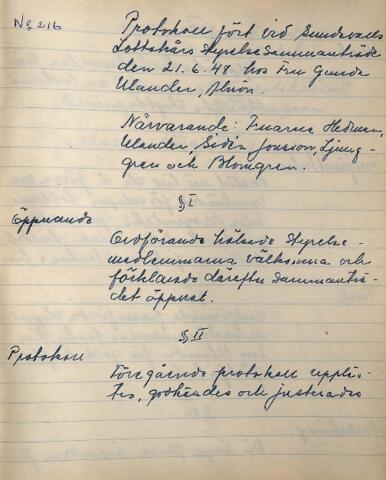 No 216
Protokoll fört vid Sundsvalls
Lottakårs Styrelsesammanträde
den 21.6.48 hos Fru Gunda
Ulander, Alnön.
Närvarande: Fruarna Hedman,
Ulander, Sidén Jonsson, Ljung-
gren och Blomgren.
§ I
Öppnande
Ordförande hälsade Styrelse-
medlemmarna välkomna och
förklarade därefter Sammanträ-
det öppnat.
§ II
Protokoll
Föregående protokoll uppläs-
tes, godkändes och justerades